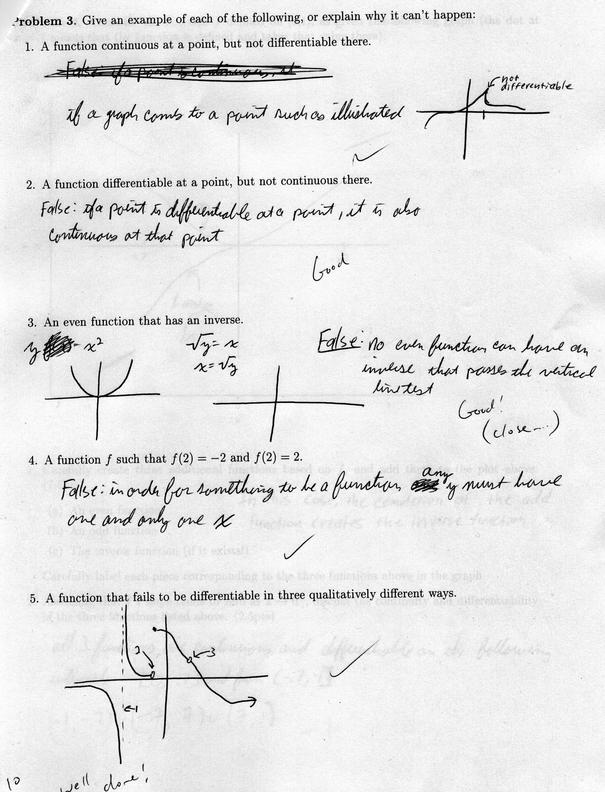 Problem 3. Give an example of each of the following, or explain why it can't happen:
1. A function continuous at a point, but not differentiable there.
False: if a point is continuous, it
not
differentiable
if a graph combs to a point such as illistrated
2. A function differentiable at a point, but not continuous there.
False: if a point is differentiable at a point, it is also
continuous at that point
Good
3. An even function that has an inverse.
y = x²
√y = x
x = √y
False: no even function can have an
inverse that passes the vertical
line test
Good!
(close...)
4. A function f such that f(2) = −2 and f(2) = 2.
False: in order for something to be a function any y must have
one and only one x
5. A function that fails to be differentiable in three qualitatively different ways.
2
3
1
10
well done!